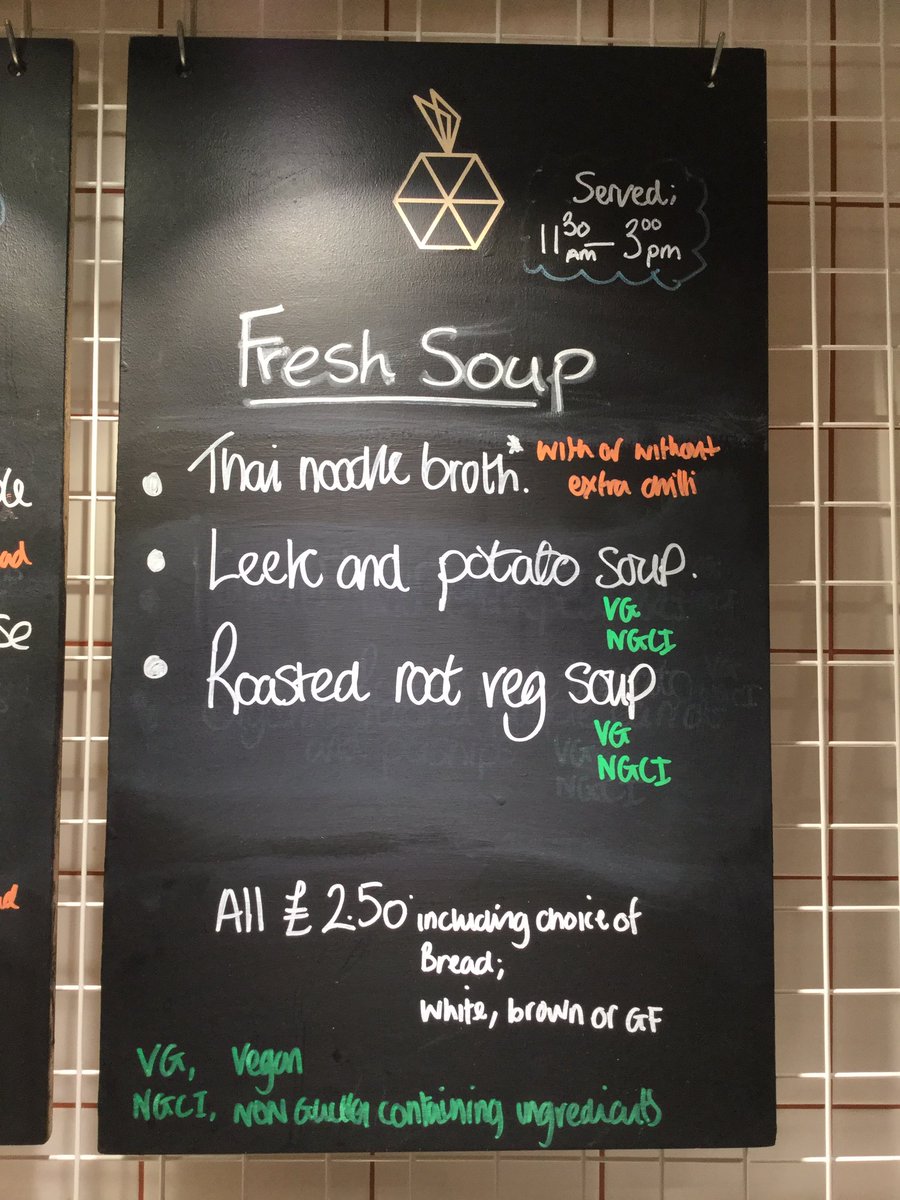 Served;
11 30 AM – 3 00 pm
Fresh Soup
• Thai noodle broth.* with or without
extra chilli
• Leek and potato soup.
VG
NGCI
• Roasted root veg soup
VG
NGCI
All £2.50 including choice of
Bread;
White, brown or GF
VG, Vegan
NGCI, NON Gluten containing ingredients